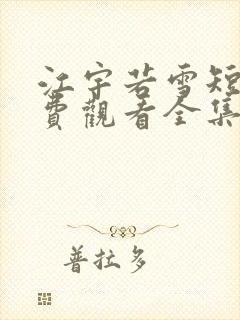 江宇若雪短
費觀看全集
普拉多